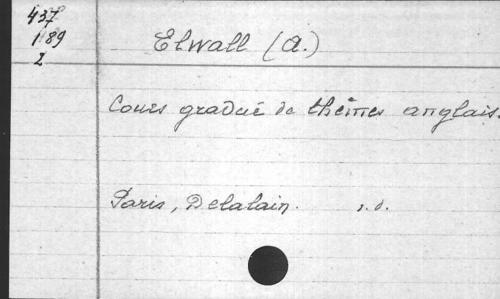 437
189
2
Elwall (A.)
Cours gradué de thèmes anglais.
Paris, Delalain. s.d.